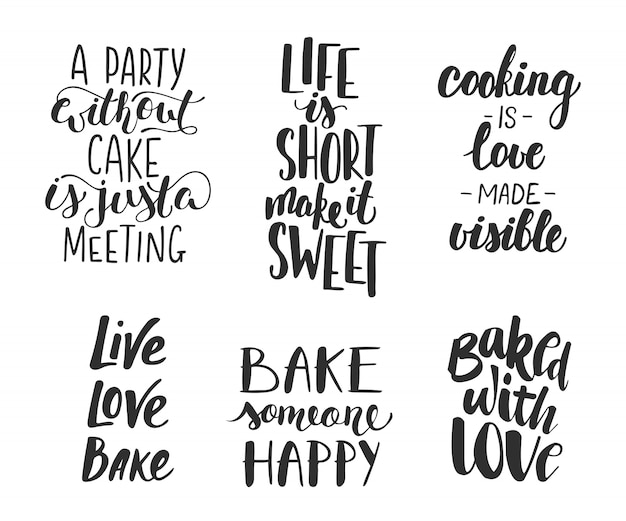 A PARTY
without
CAKE
is just a
MEETING
LIFE
is
SHORT
make it
SWEET
cooking
- IS -
love
- MADE -
visible
Live
Love
Bake
BAKE
someone
HAPPY
Baked
with
LOVE